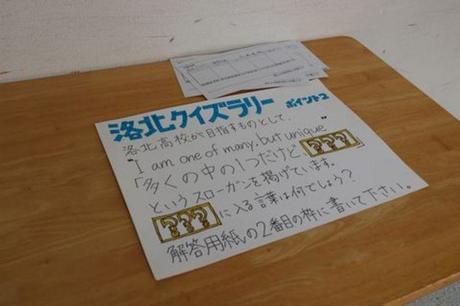 洛北クイズラリー ポイント2
洛北高校が目指すものとして、
"I am one of many, but unique"
「多くの中の1つだけど ???」
というスローガンを掲げています。
??? に入る言葉は何でしょう?
解答用紙の2番目の枠に書いて下さい。